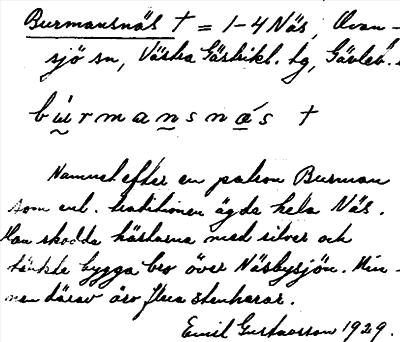 Burmansnäs † = 1-4 Näs, Ovan-
sjö sn, Västra Gästrikl. tg, Gävleb. l.
búrmansnás †
Namnet efter en patron Burman
som enl. traditionen ägde hela Näs.
Han skodda hästarna med silver och
tänkte bygga bro över Näsbysjön. Min-
nen därav äro flera stenharar.
Emil Gustavsson 1929.